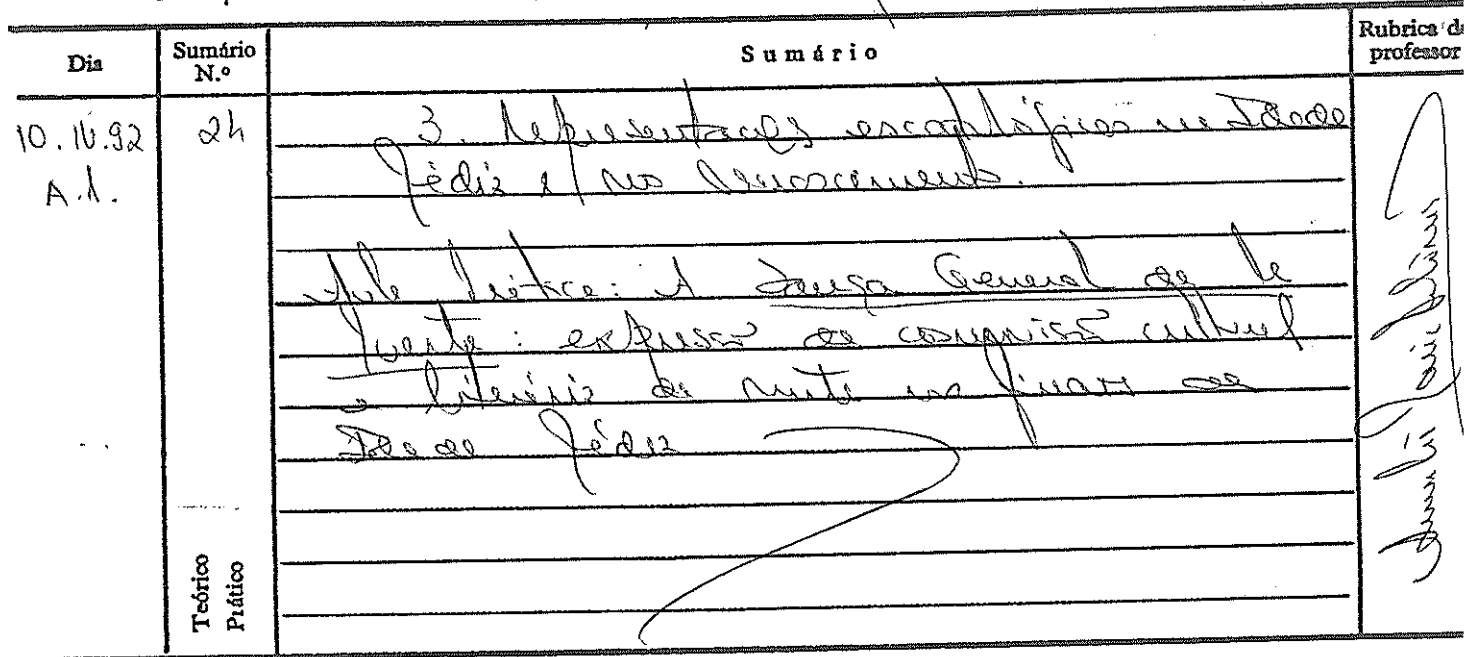 Dia
Sumário N.º
Sumário
Rubrica do professor
10.IV.92
2h
A.1.
3. Representações escatológicas na Idade
Média e no Renascimento.
Aula Prática: A Danza General de la
Muerte: expressão da cosmovisão cultural
e literária da morte nos finais da
Idade Média
Teórico
Prático